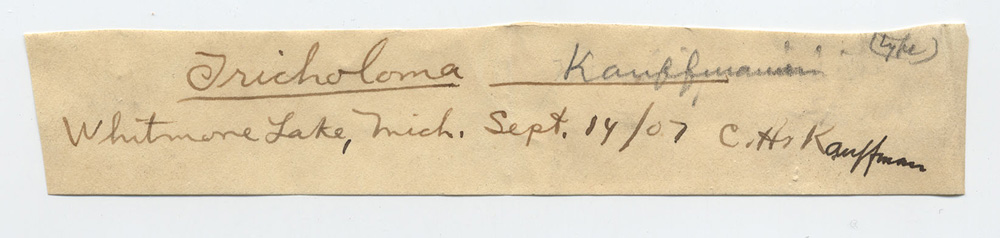 Tricholoma Kauffmanii (type)
Whitmore Lake, Mich. Sept. 14/07 C. H. Kauffman